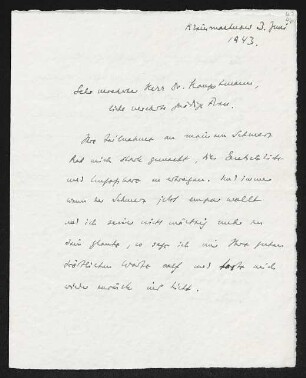 3. Juni
1943.
Sehr verehrter Herr Dr. Hauptmann,
liebe verehrte gnädige Frau.
Ihre Teilnahme an meinem Schmerz
hat mich stark gemacht, das
und zu ertragen. Und immer
wenn der Schmerz jetzt empor wallt
und ich seiner nicht mächtig mehr zu
sein glaube, so sage ich mir Ihre guten
tröstlichen Worte auf und taste mich
wieder zurück ins Licht.